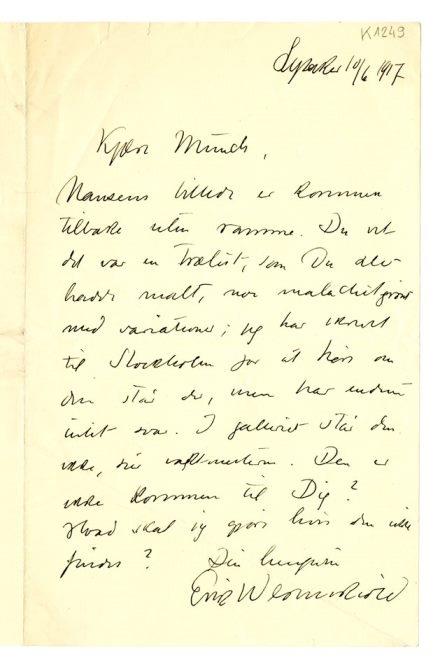 K1249
Lysaker 10/6 1917
Kjære Munch,
Nansens billede er kommen
tilbake uten ramme. Du vet
det var en trælist, som Du
hadde malt, mer malachitgrønt
med variationer; jeg har skrevet
til Stockholm for at høre om
den står der, men har endnu
intet svar. I galleriet står den
ikke, sier vaktmesteren. Den er
ikke kommen til Dig?
Hvad skal jeg gjøre hvis den ikke
findes? Din hengivne
Erik Werenskiold